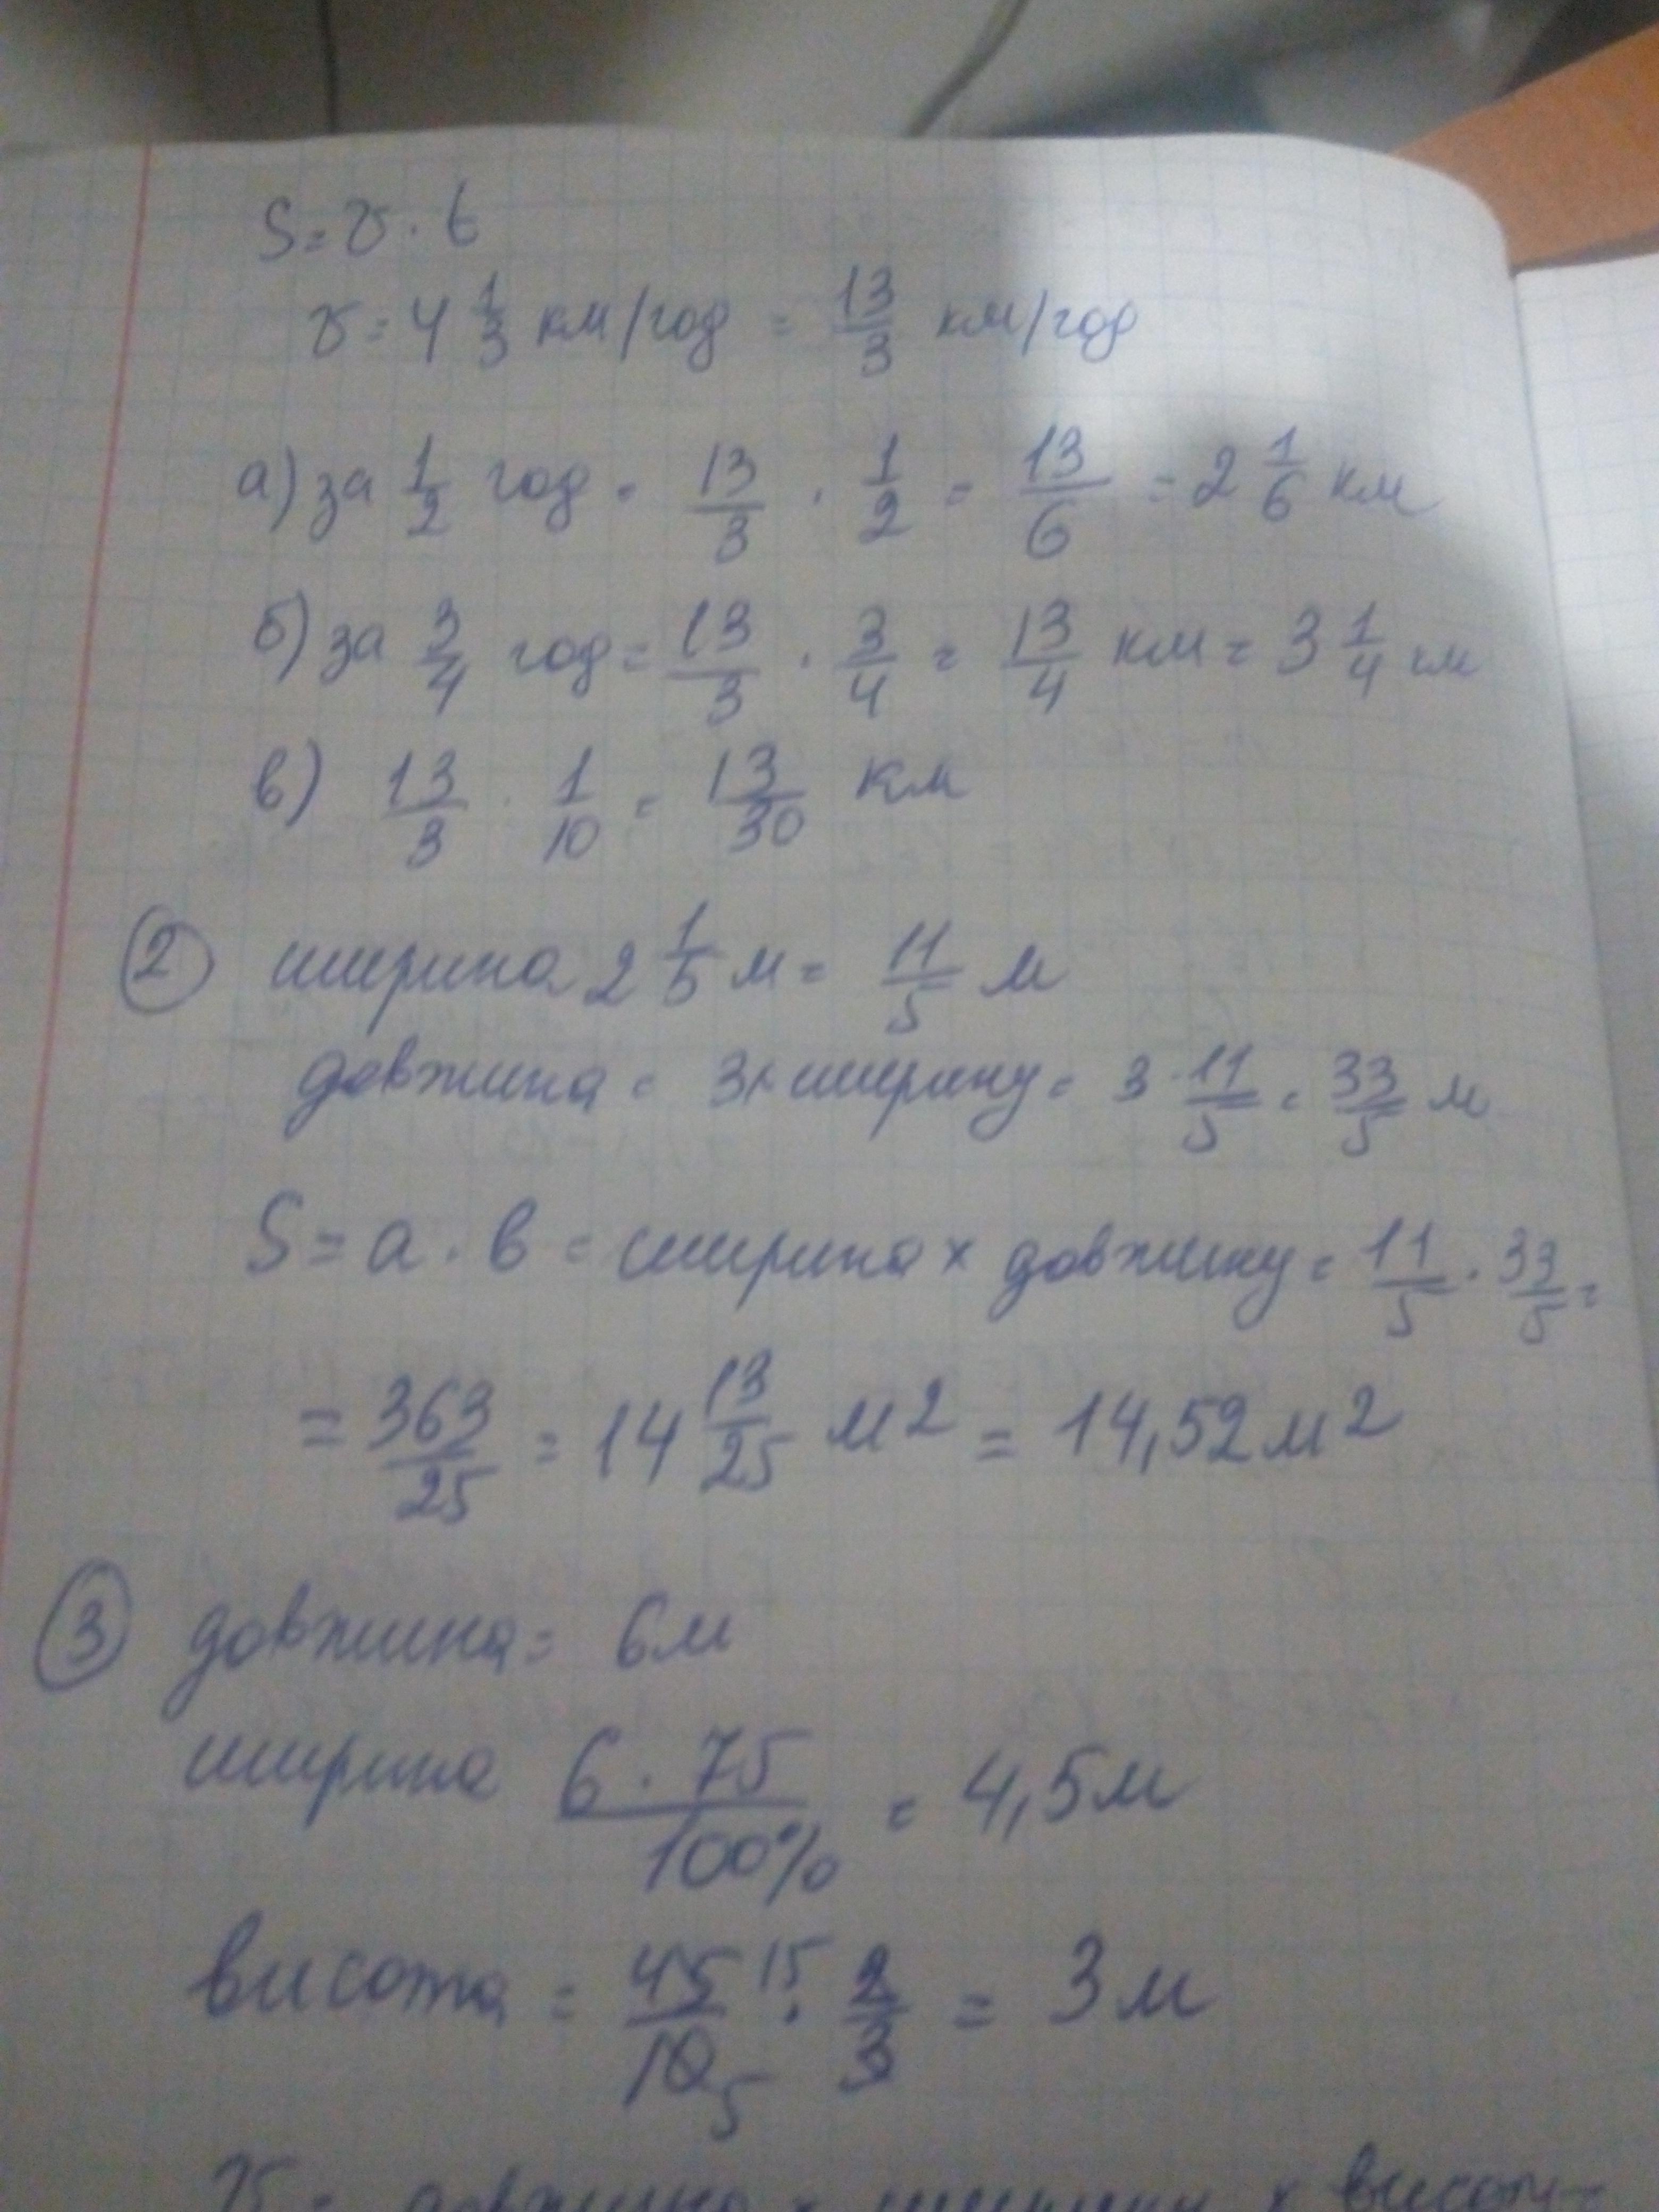 S = v · t
v = 4 1/3 км/год = 13/3 км/год
а) за 1/2 год = 13/3 · 1/2 = 13/6 = 2 1/6 км
б) за 3/4 год = 13/3 · 3/4 = 13/4 км = 3 1/4 км
в) 13/3 · 1/10 = 13/30 км
② ширина 2 1/5 м = 11/5 м
довжина = 3 × ширину = 3 · 11/5 = 33/5 м
S = a · b = ширина × довжину = 11/5 · 33/5 =
= 363/25 = 14 13/25 м² = 14,52 м²
③ довжина = 6 м
ширина 6 · 75/100% = 4,5 м
висота = 45 15/10 5 · 2/3 = 3 м
V = довжина × ширину × висот